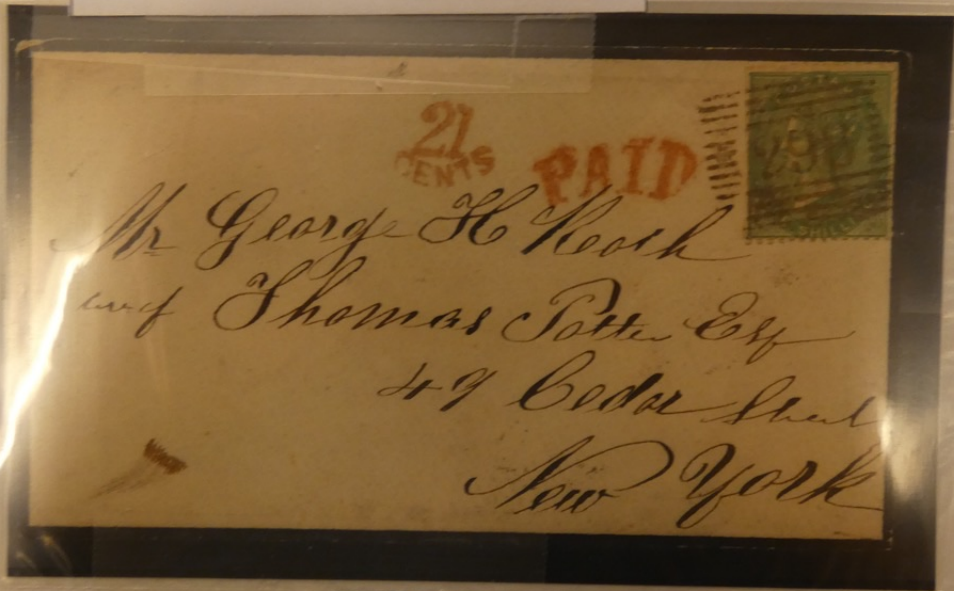 21
CENTS
PAID
Mr George H
Thomas Potter Esq
49 Cedar Street
New York